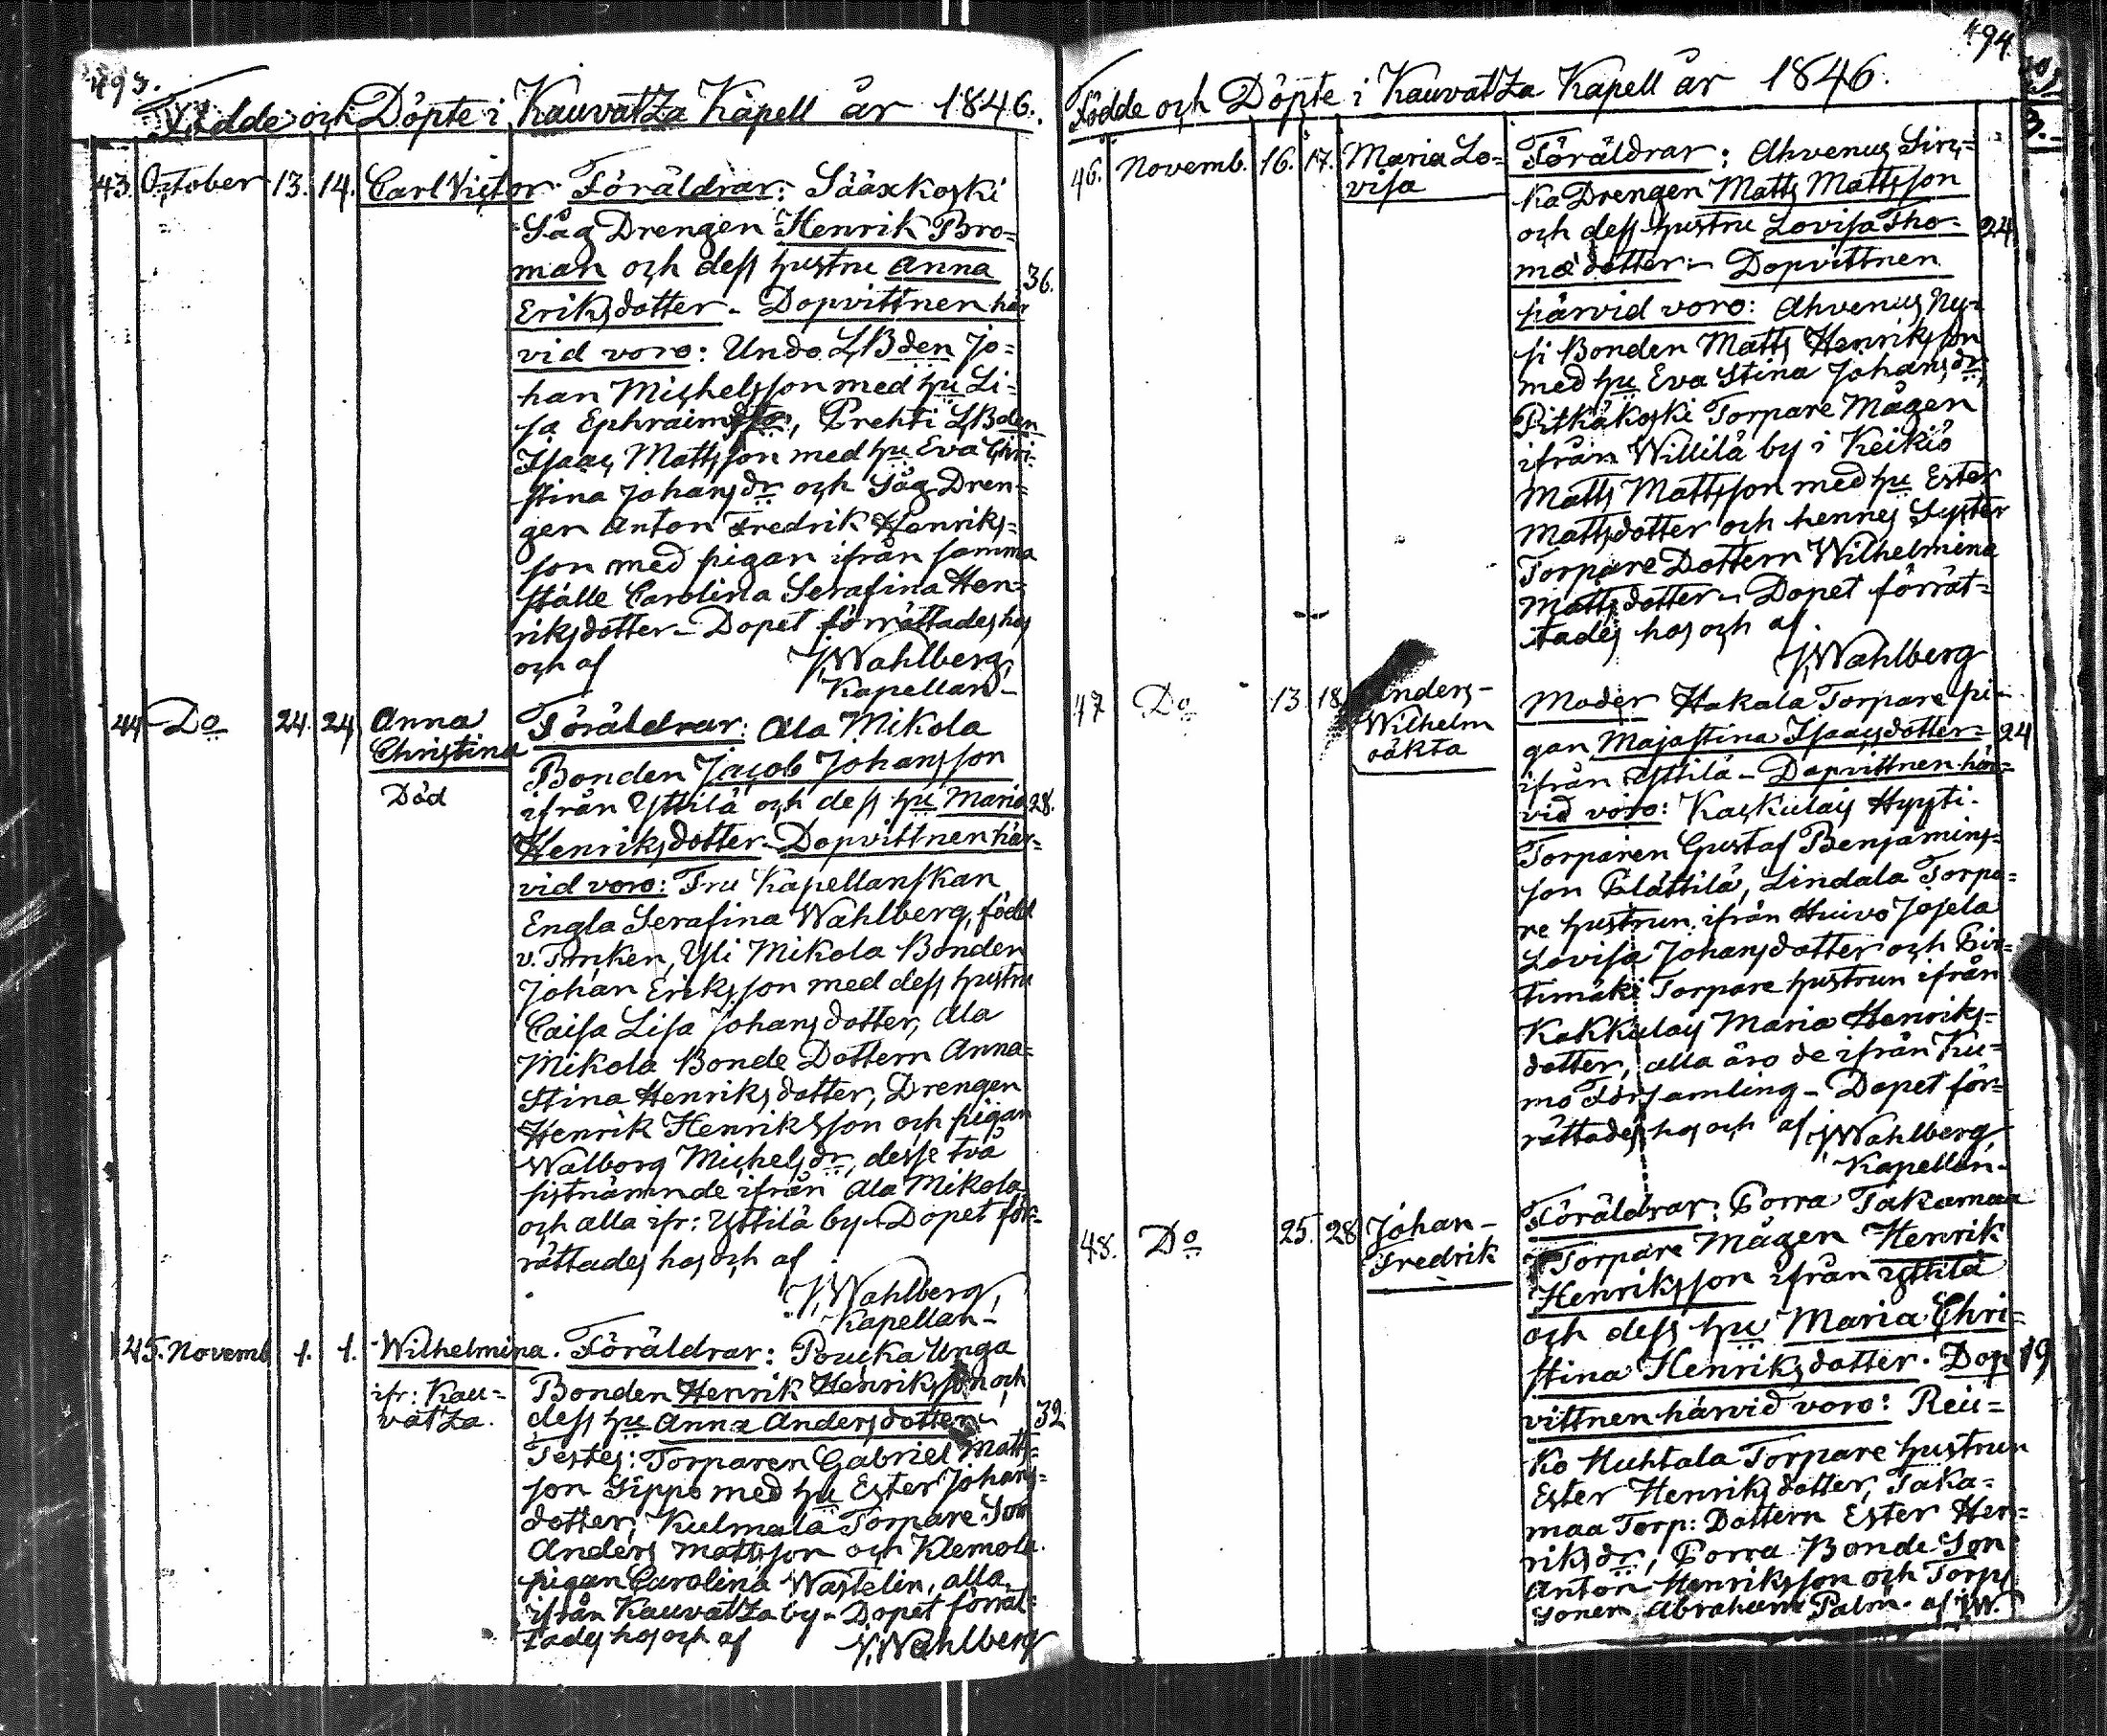 493.
Födde och Döpte i Kauvatza Kapell år 1846.
43. October 13. 14. Carl Victor. Föräldrar: Sääxkoski
Såg Drengen Henrik Bro=
man och dess hustru Anna 36.
Eriksdotter - Dopvittnen här
vid voro: Undo LBden Jo=
han Michelsson med hu Li=
sa Ephraims, Prehti LBden
Isaac Mattsson med hu Eva Chri=
stina Johansdr och Såg Dren=
gen Anton Fredrik Henriks=
son med pigan ifrån samma
ställe Carolina Serafina Hen=
riksdotter - Dopet förrättades hos
och af J, Wahlberg,
Kapellan -
44 Do 24. 24 Anna
Christina
Död
Föräldrar: Ala Mikola
Bonden Jacob Johansson
ifrån Yttilä och dess hu Maria 28.
Henriksdotter - Dopvittnen här=
vid voro: Fru Kapellanskan
Engla Serafina Wahlberg, född
v. , Yli Mikola Bonden
Johan Eriksson med dess hustru
Caisa Lisa Johansdotter, Ala
Mikola Bonde Dottern Anna=
Stina Henriksdotter, Drengen
Henrik Henriksson och pigan
Walborg Michelsdr, desse två
sistnämnde ifrån Ala Mikola
och alla ifr: Yttilä by - Dopet för=
rättades hos och af
J, Wahlberg,
Kapellan -
45. Novemb 1. 1. Wilhelmina. Föräldrar: Poucka Unga
ifr: Kau=
vatza.
Bonden Henrik Henriksson och
dess hu Anna Andersdotter - 32
Testes: Torparen Gabriel Matts=
son Sippo med hu Ester Johans=
dotter, Kulmala Torpare Son
Anders Mattsson och Klemola
pigan Carolina Wastelin, alla
ifrån Kauvatza by - Dopet förrät=
tades hos och af J, Wahlberg
494
Födde och Döpte i Kauvatza Kapell år 1846.
46. Novemb. 16. 17. Maria Lo=
visa
Föräldrar: Ahvenus Sir=
ka Drengen Matts Mattsson
och dess hustru Lovisa Tho= 24
mædotter - Dopvittnen
härvid voro: Ahvenus Ny=
si Bonden Matts Henriksson
med hu Eva Stina Johansdr,
Pitkäkoski Torpare Mågen
ifrån Willilä by i Keikiö
Matts Mattsson med hu Ester
Mattsdotter och hennes Syster
Torpare Dottern Wilhelmina
Mattsdotter - Dopet förrät=
tades hos och af
J, Wahlberg
47 Do 13. 18. Anders -
Wilhelm
oäkta
Moder Hakala Torpare pi=
gan Majastina Isaacsdotter - 24
ifrån Yttilä - Dopvittnen här=
vid voro: Kackulais Hyyti.
Torparen Gustaf Benjamins=
son Plättilä, Lindala Torpa=
re hustrun ifrån Huivo Jojela
Lovisa Johansdotter och Pir=
timäki Torpare hustrun ifrån
Kakkulais Maria Henriks=
dotter, alla äro de ifrån Hu=
mo Församling - Dopet för=
rättades hos och af J, Wahlberg,
Kapellan -
48. Do 25. 28 Johan -
Fredrik
Föräldrar: Porra Takamaa
Torpare Mågen Henrik
Henriksson ifrån Yttilä
och dess hu Maria Chri=
stina Henriksdotter. Dop 19
vittnen härvid voro: Reu=
ko Huhtala Torpare hustrun
Ester Henriksdotter, Taka=
maa Torp: Dottern Ester Hen=
riksdr, Porra Bonde Son
Anton Henriksson och Torp
Sonen Abraham Palm. af J.W.